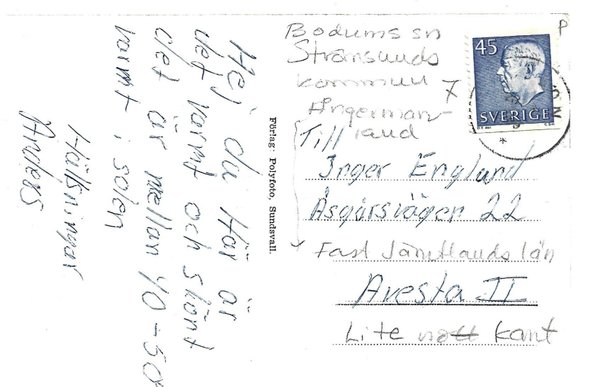 Hej du Här är
det varmt och skönt
det är mellan 40-50°
varmt i solen
Hälsningar
Anders
Förlag: Polyfoto, Sundsvall.
Bodums sn
Strömsunds
kommun
Ångerman-
land
P
7
45
SVERIGE
Till
Inger Englund
Åsgårsvägen 22
Fast Jämtlands län
Avesta II
Lite nött kant